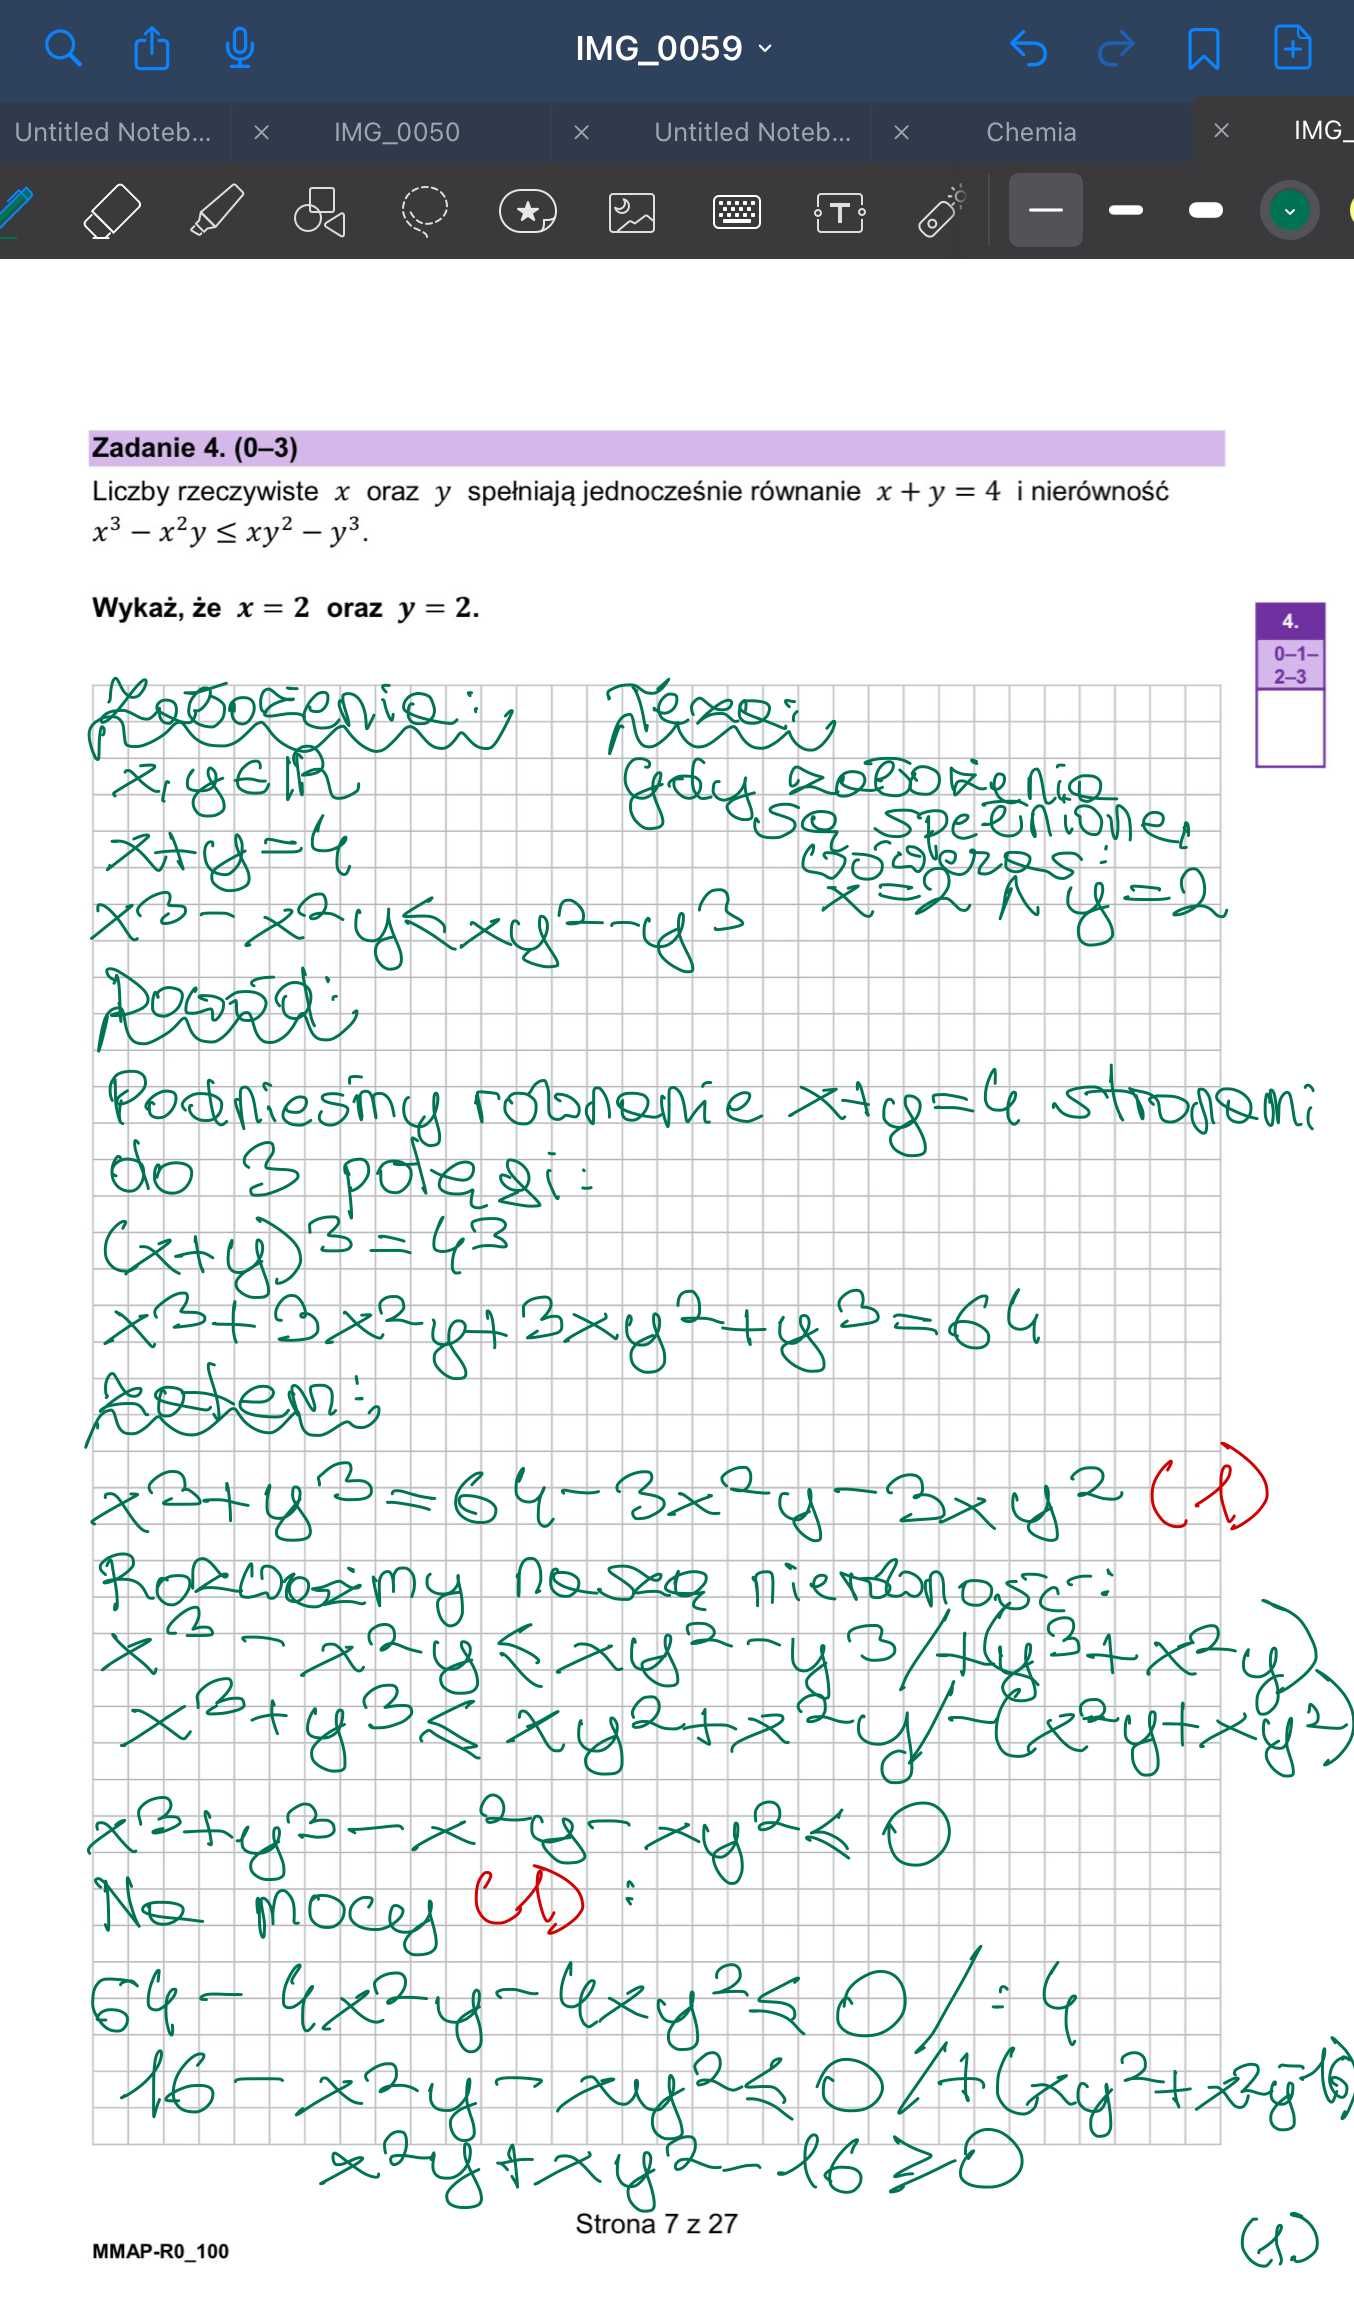 IMG_0059
Untitled Noteb...
IMG_0050
Untitled Noteb...
Chemia
IMG_
T
Zadanie 4. (0–3)
Liczby rzeczywiste x oraz y spełniają jednocześnie równanie x + y = 4 i nierówność
x³ − x²y ≤ xy² − y³.
Wykaż, że x = 2 oraz y = 2.
4.
0–1–
2–3
Założenia:
x, y ∈ ℝ
x+y=4
x³ − x²y ≤ xy² − y³
Teza:
Gdy założenia
są spełnione,
wówczas:
x=2 ∧ y=2
Dowód:
Podnieśmy równanie x+y=4 stronami
do 3 potęgi:
(x+y)³ = 4³
x³+3x²y+3xy²+y³=64
Zatem:
x³+y³=64−3x²y−3xy² (1)
Rozważmy naszą nierówność:
x³ − x²y ≤ xy² − y³ / +(y³+x²y)
x³+y³ ≤ xy²+x²y / −(x²y+xy²)
x³+y³−x²y−xy² ≤ 0
Na mocy (1) :
64−4x²y−4xy² ≤ 0 / :4
16−x²y−xy² ≤ 0 / +(xy²+x²y−16)
x²y+xy²−16 ≥ 0
Strona 7 z 27
(1)
MMAP-R0_100